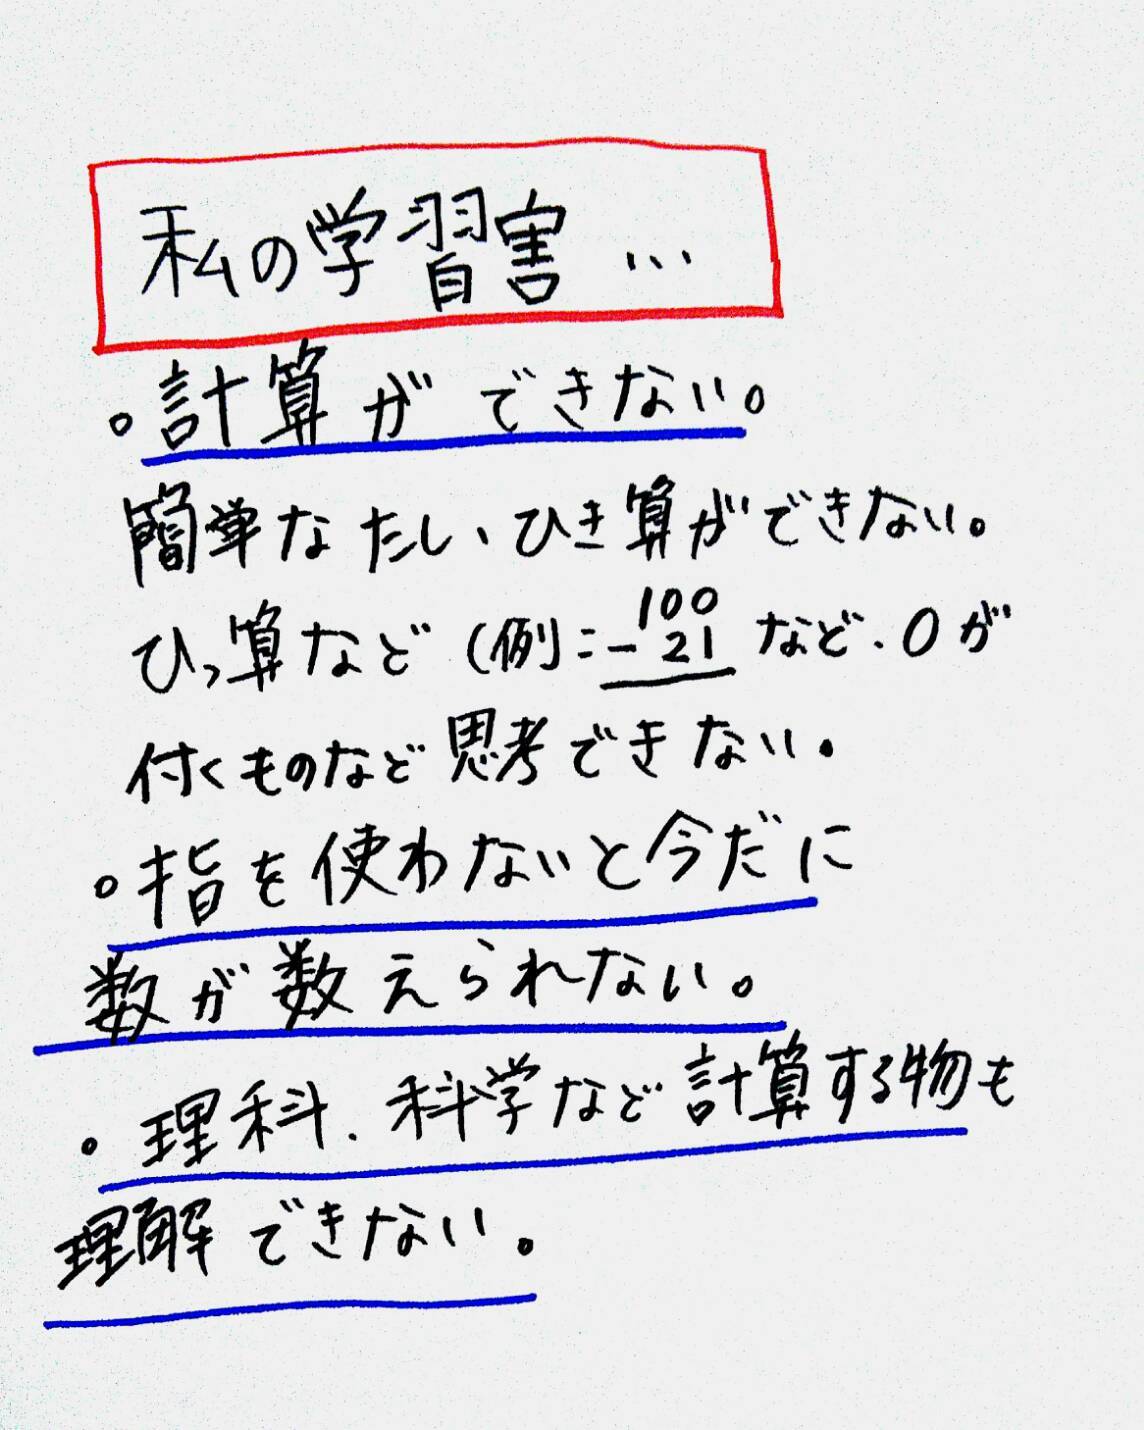 私の学習害…
。計算ができない。
簡単なたし、ひき算ができない。
ひっ算など(例:100
-21 など、0が
付くものなど思考できない。
。指を使わないと今だに
数が数えられない。
・理科、科学など計算する物も
理解できない。